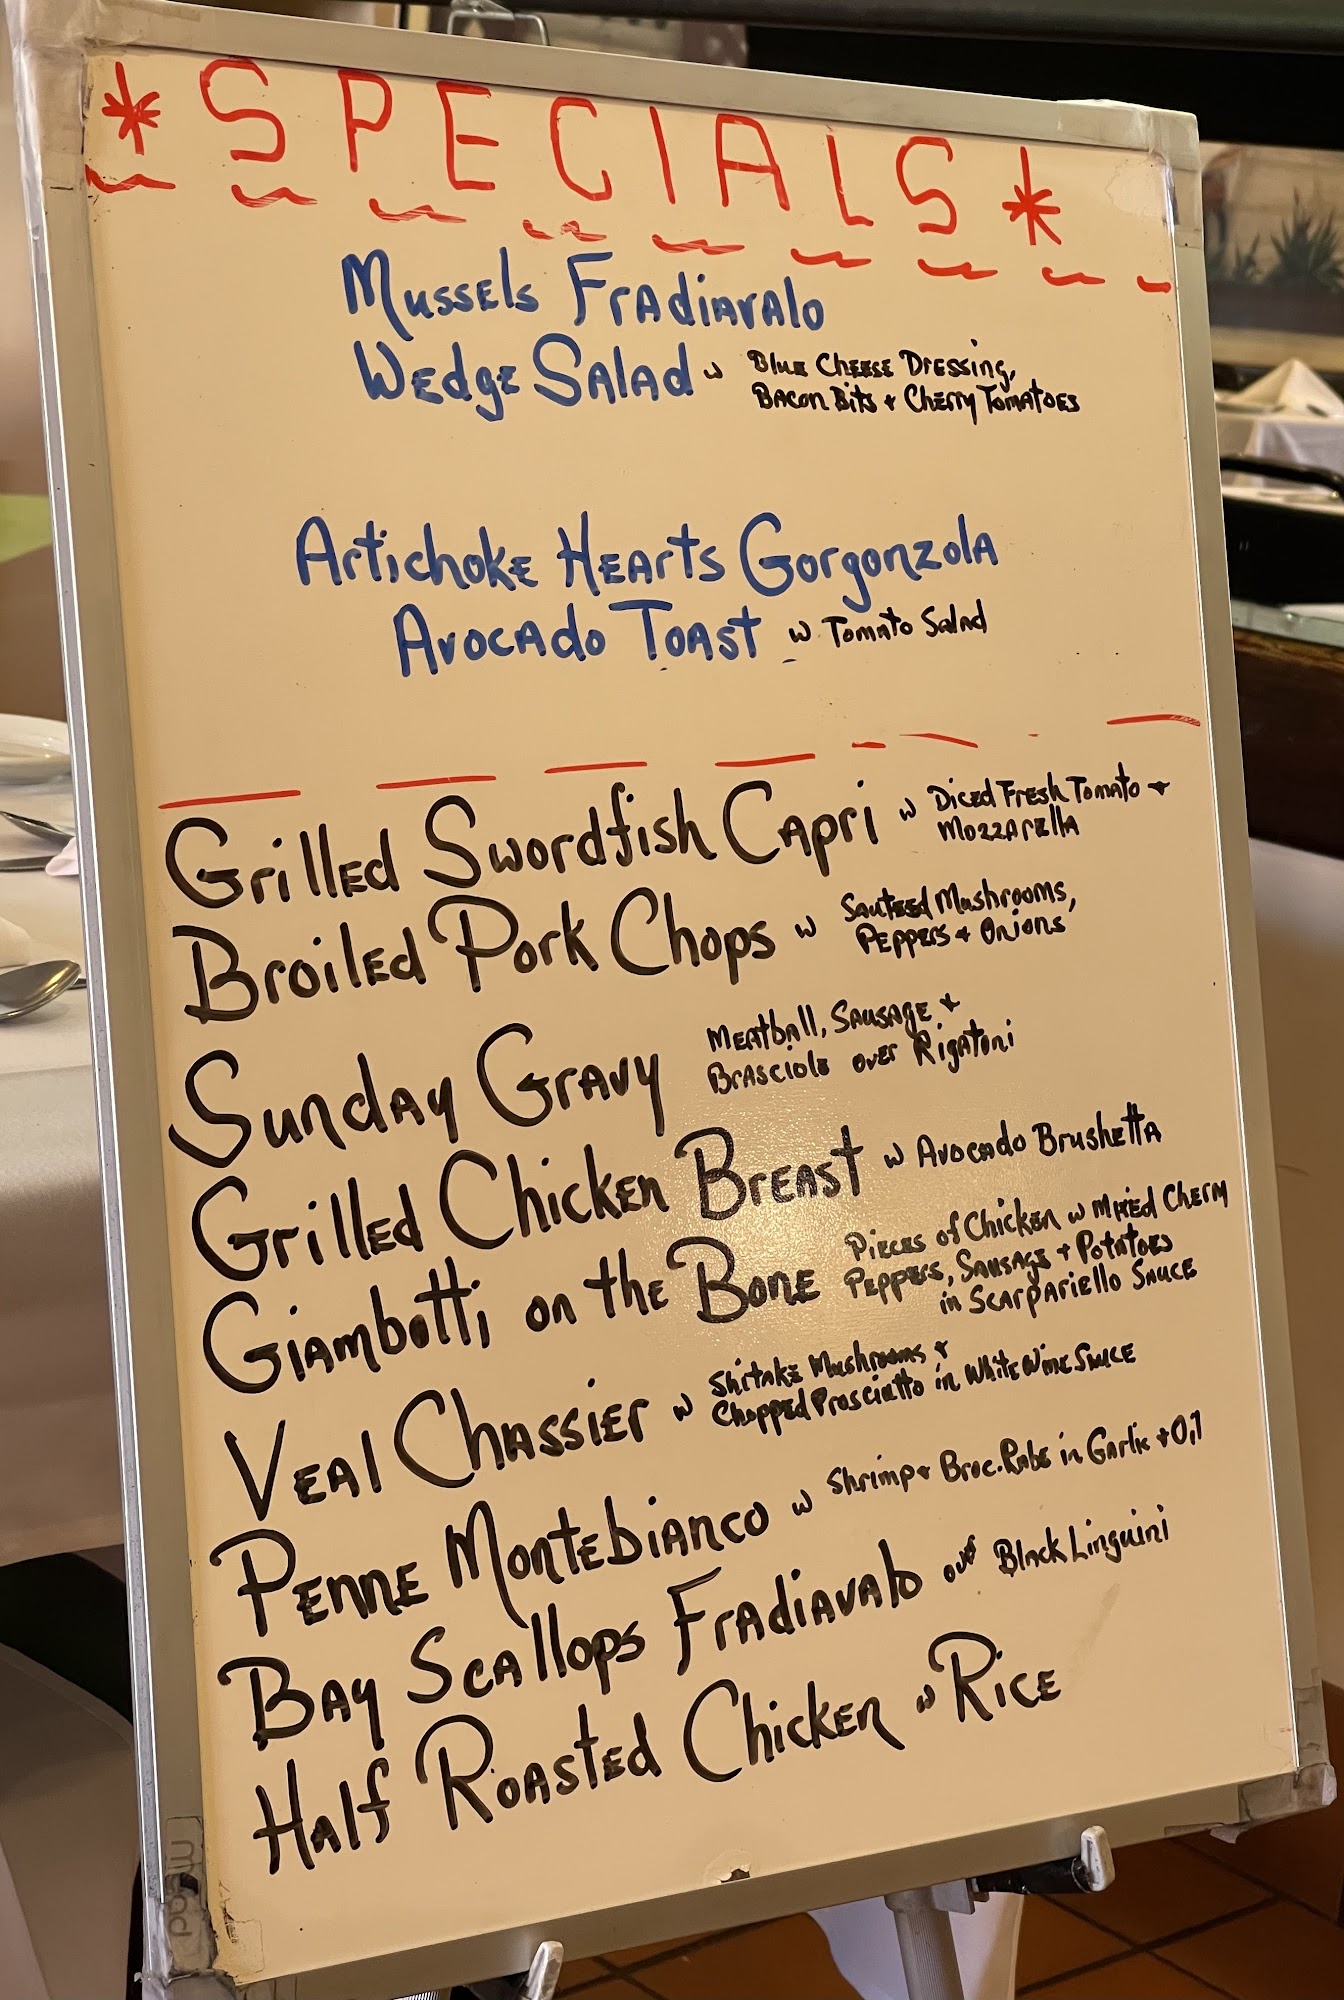 *SPECIALS*
Mussels Fradiavalo
Wedge Salad w Blue Cheese Dressing,
Bacon Bits + Cherry Tomatoes
Artichoke Hearts Gorgonzola
Avocado Toast w Tomato Salad
Grilled Swordfish Capri w Diced Fresh Tomato +
Mozzarella
Broiled Pork Chops w Sauteed Mushrooms,
Peppers + Onions
Sunday Gravy Meatball, Sausage +
Brasciole over Rigatoni
Grilled Chicken Breast w Avocado Brushetta
Giambotti on the Bone Pieces of Chicken w Mixed Cherry
Peppers, Sausage + Potatoes
in Scarpariello Sauce
Veal Chassier w Shitake Mushrooms +
Chopped Prosciutto in White Wine Sauce
Penne Montebianco w Shrimp + Broc. Rabe in Garlic + Oil
Bay Scallops Fradiavalo over Black Linguini
Half Roasted Chicken w Rice